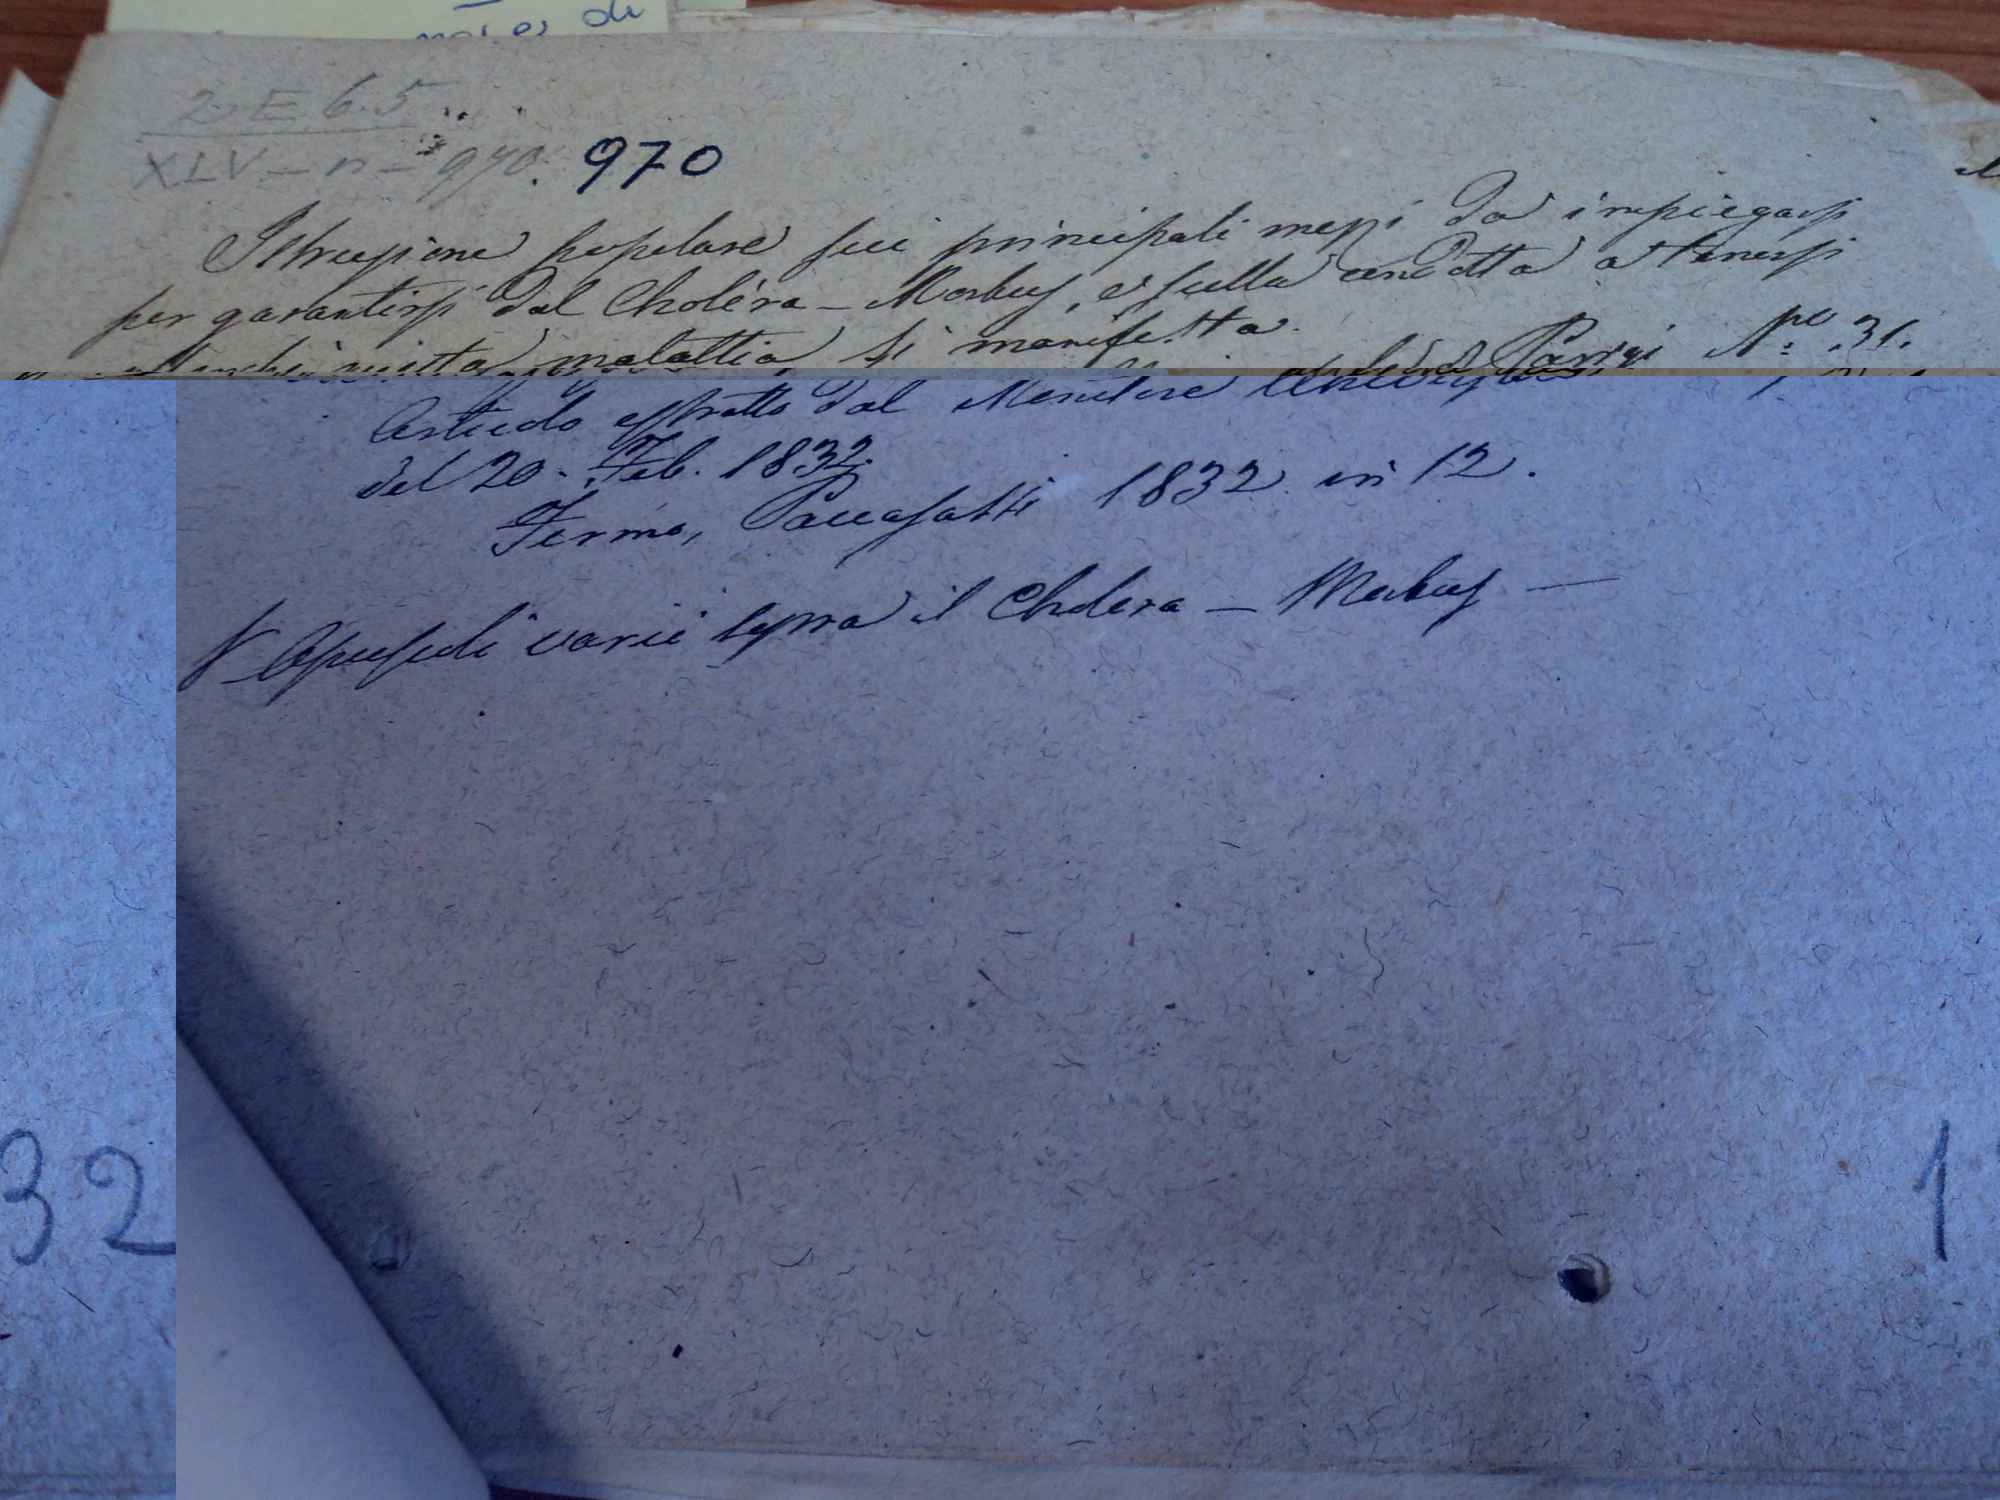 di
2. E. 6. 5
XLV - n - 970. 970
Istruzione popolare sui principali mezzi da impiegarsi
per garantirsi dal Choléra - Morbus, e sulla condotta a tenersi
questa malattia si manifesta.
Parigi N.º 31.
Articolo estratto dal Monitore
del 20. Feb. 1832.
Fermo, Paccasassi 1832 in 12.
V. Opuscoli varii sopra il Cholera - Morbus —
32
1